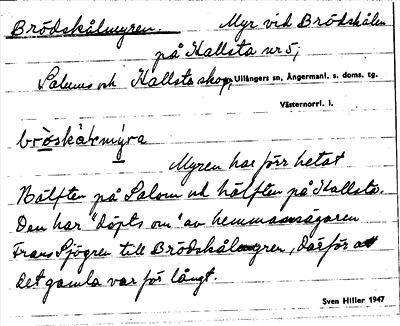 Brödskålmyren. Myr vid Brödskålen
på Hallsta nr 5,
Saloms och Hallsta skog, Ullångers sn, Ångermanl. s. doms. tg.
Västernorrl. l.
Myren har förr hetat
Hälften på Salom och hälften på Hallsta.
Den har "döpts om" av hemmansägaren
Frans Sjögren till Brödskålmyren, därför att
det gamla var för långt.
Sven Hiller 1947